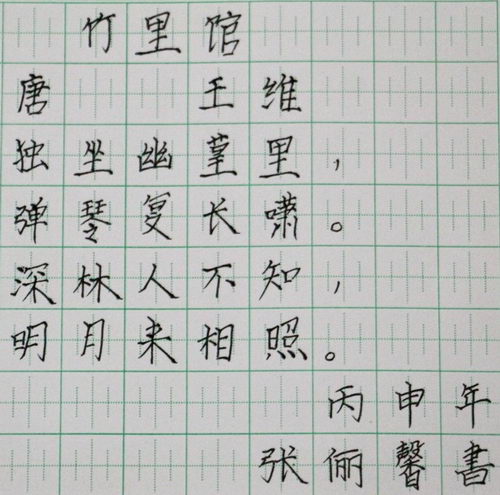 竹里馆
唐 王维
独坐幽篁里，
弹琴复长啸。
深林人不知，
明月来相照。
丙申年
张俪馨書